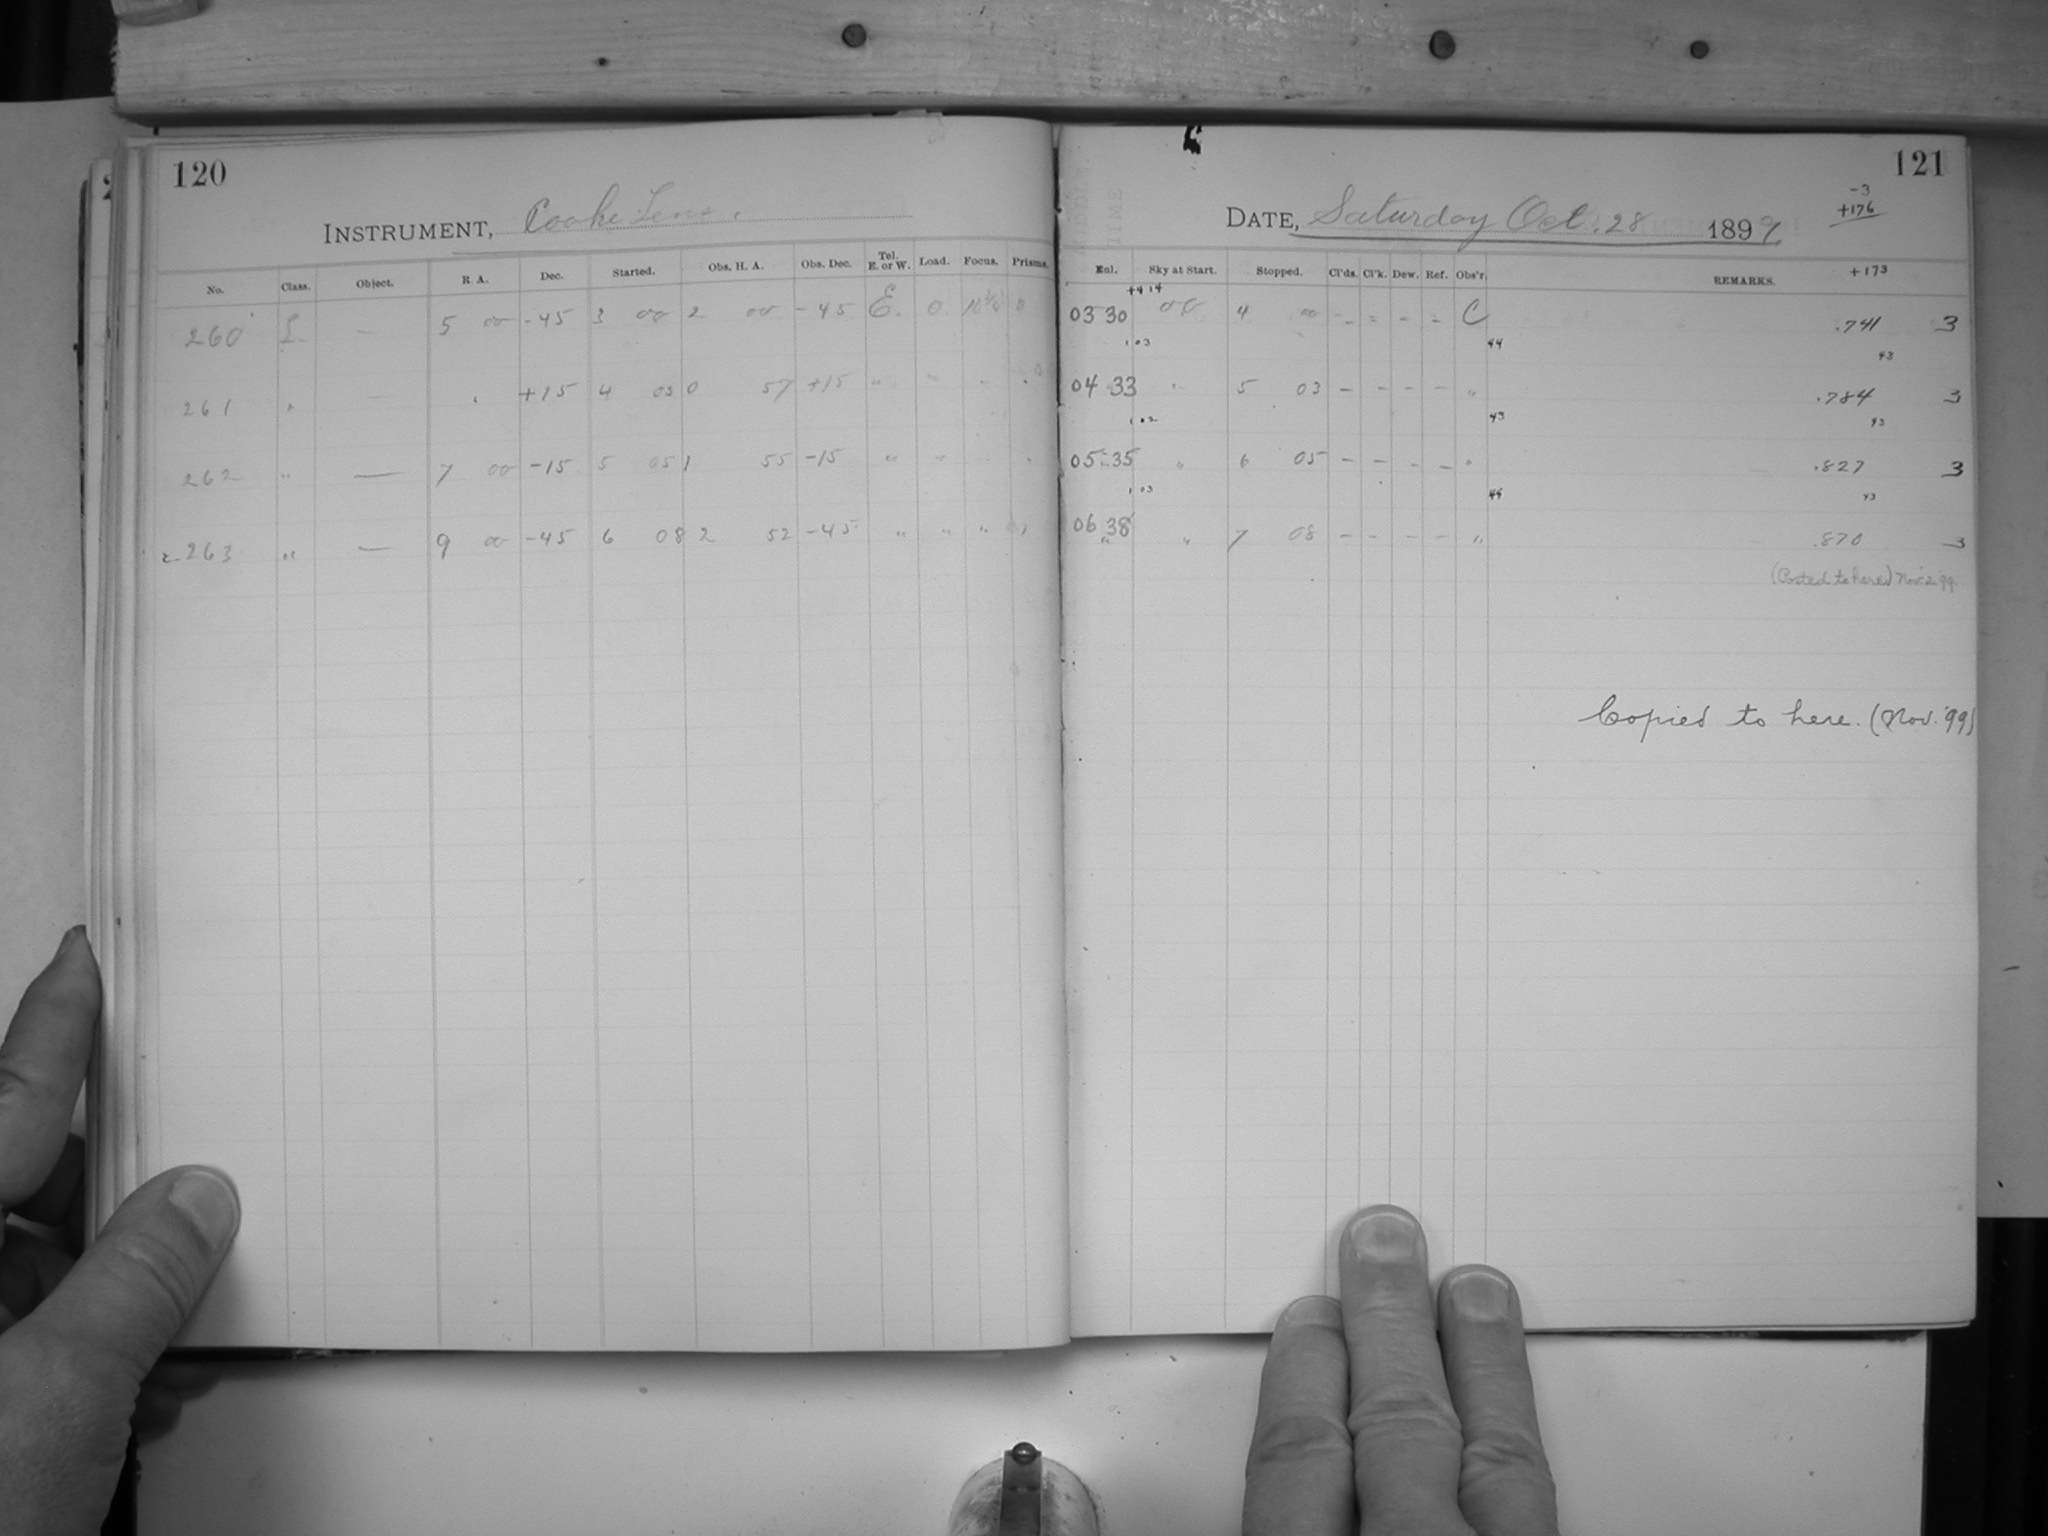 120
INSTRUMENT, Cooke Lens.
No. Class. Object. R. A. Dec. Started. Obs. H. A. Obs. Dec. Tel. E. or W. Load. Focus. Prisms.
260 L — 5 00 -45 3 00 2 00 -45 E. 0 0
261 " — " +15 4 03 0 57 +15 " " " "
262 " — 7 00 -15 5 05 1 55 -15 " " " "
263 " — 9 00 -45 6 08 2 52 -45 " " " "
121
-3
+176
DATE, Saturday Oct. 28 1899
+173
Exl. Sky at Start. Stopped. Cl'ds. Cl'k. Dew. Ref. Obs'r. REMARKS.
+4 14
03 30 00 4 00 - - - - C .741 3
1 03 44 43
04 33 " 5 03 - - - - " .784 3
1 02 43 43
05 35 " 6 05 - - - - " .827 3
1 03 44 43
06 38 " 7 08 - - - - " .870 3
(Posted to here) Nov. 2 '99.
Copied to here. (Nov. '99)